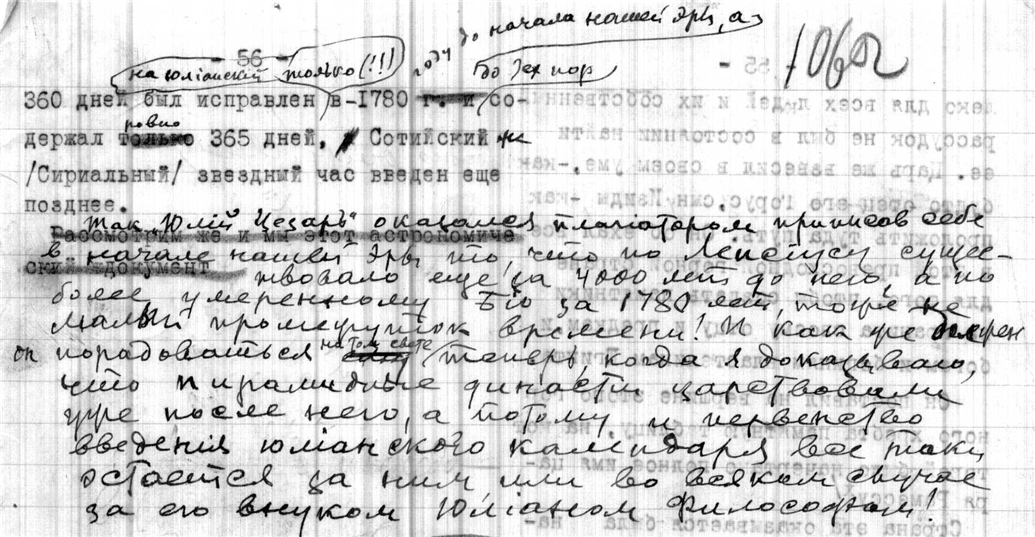 - 56 -
году до начала нашей эры, а
до тех пор
106
на юліанскій только (!!!)
360 дней был исправлен в -1780 г. и со-
ровно
держал только 365 дней. Сотийский же
/Сириальный/ звездный час введен еще
позднее.
Так "Юлій Цезарь" оказался плагіатором приписав себе
Рассмотрим же и мы этот астрономиче
в начале нашей эры то, что по Лепсіусу суще-
ский документ
твовало еще за 4000 лет до него, а по
более умеренному Біо за 1780 лет, тоже не
малый промежуток времени! И как уже должен
он порадоваться на том свете теперь, когда я доказываю,
что пирамидные династіи царствовали
уже после него, а потому и первенство
введенія юліанского календаря все таки
остается за ним или во всяком случае
за его внуком Юліаном Философом!